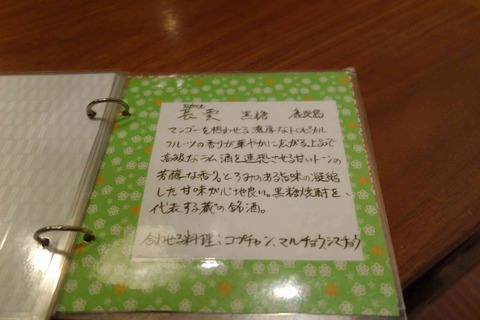 長雲 黒糖 鹿児島
マンゴーを想わせる濃厚なトロピカル
フルーツの香りが華やかに広がる上品で
高級なラム酒を連想させる甘いトーンの
芳醇な香り。とろみのある旨味の凝縮
した甘味が心地良い。黒糖焼酎を、
代表する蔵の銘酒。
合わせる料理;コプチャン、マルチョウ、シマチョウ